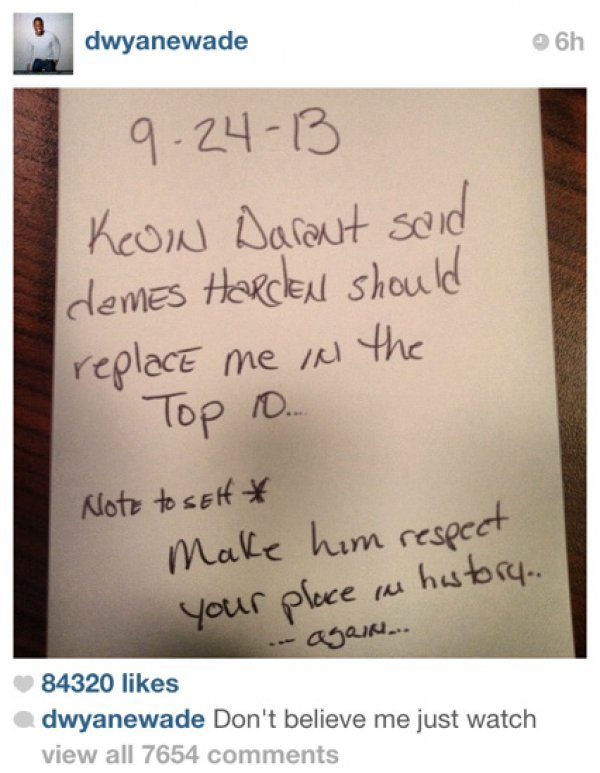 dwyanewade 6h
9-24-13
Kevin Darant said
James Harden should
replace me in the
Top 10...
Note to self *
Make him respect
your place in history..
... again...
84320 likes
dwyanewade Don't believe me just watch
view all 7654 comments